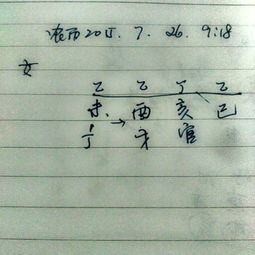 农历2015.7.26.9:18
女
乙 乙 丁 乙
未 → 酉 亥 巳
才 官